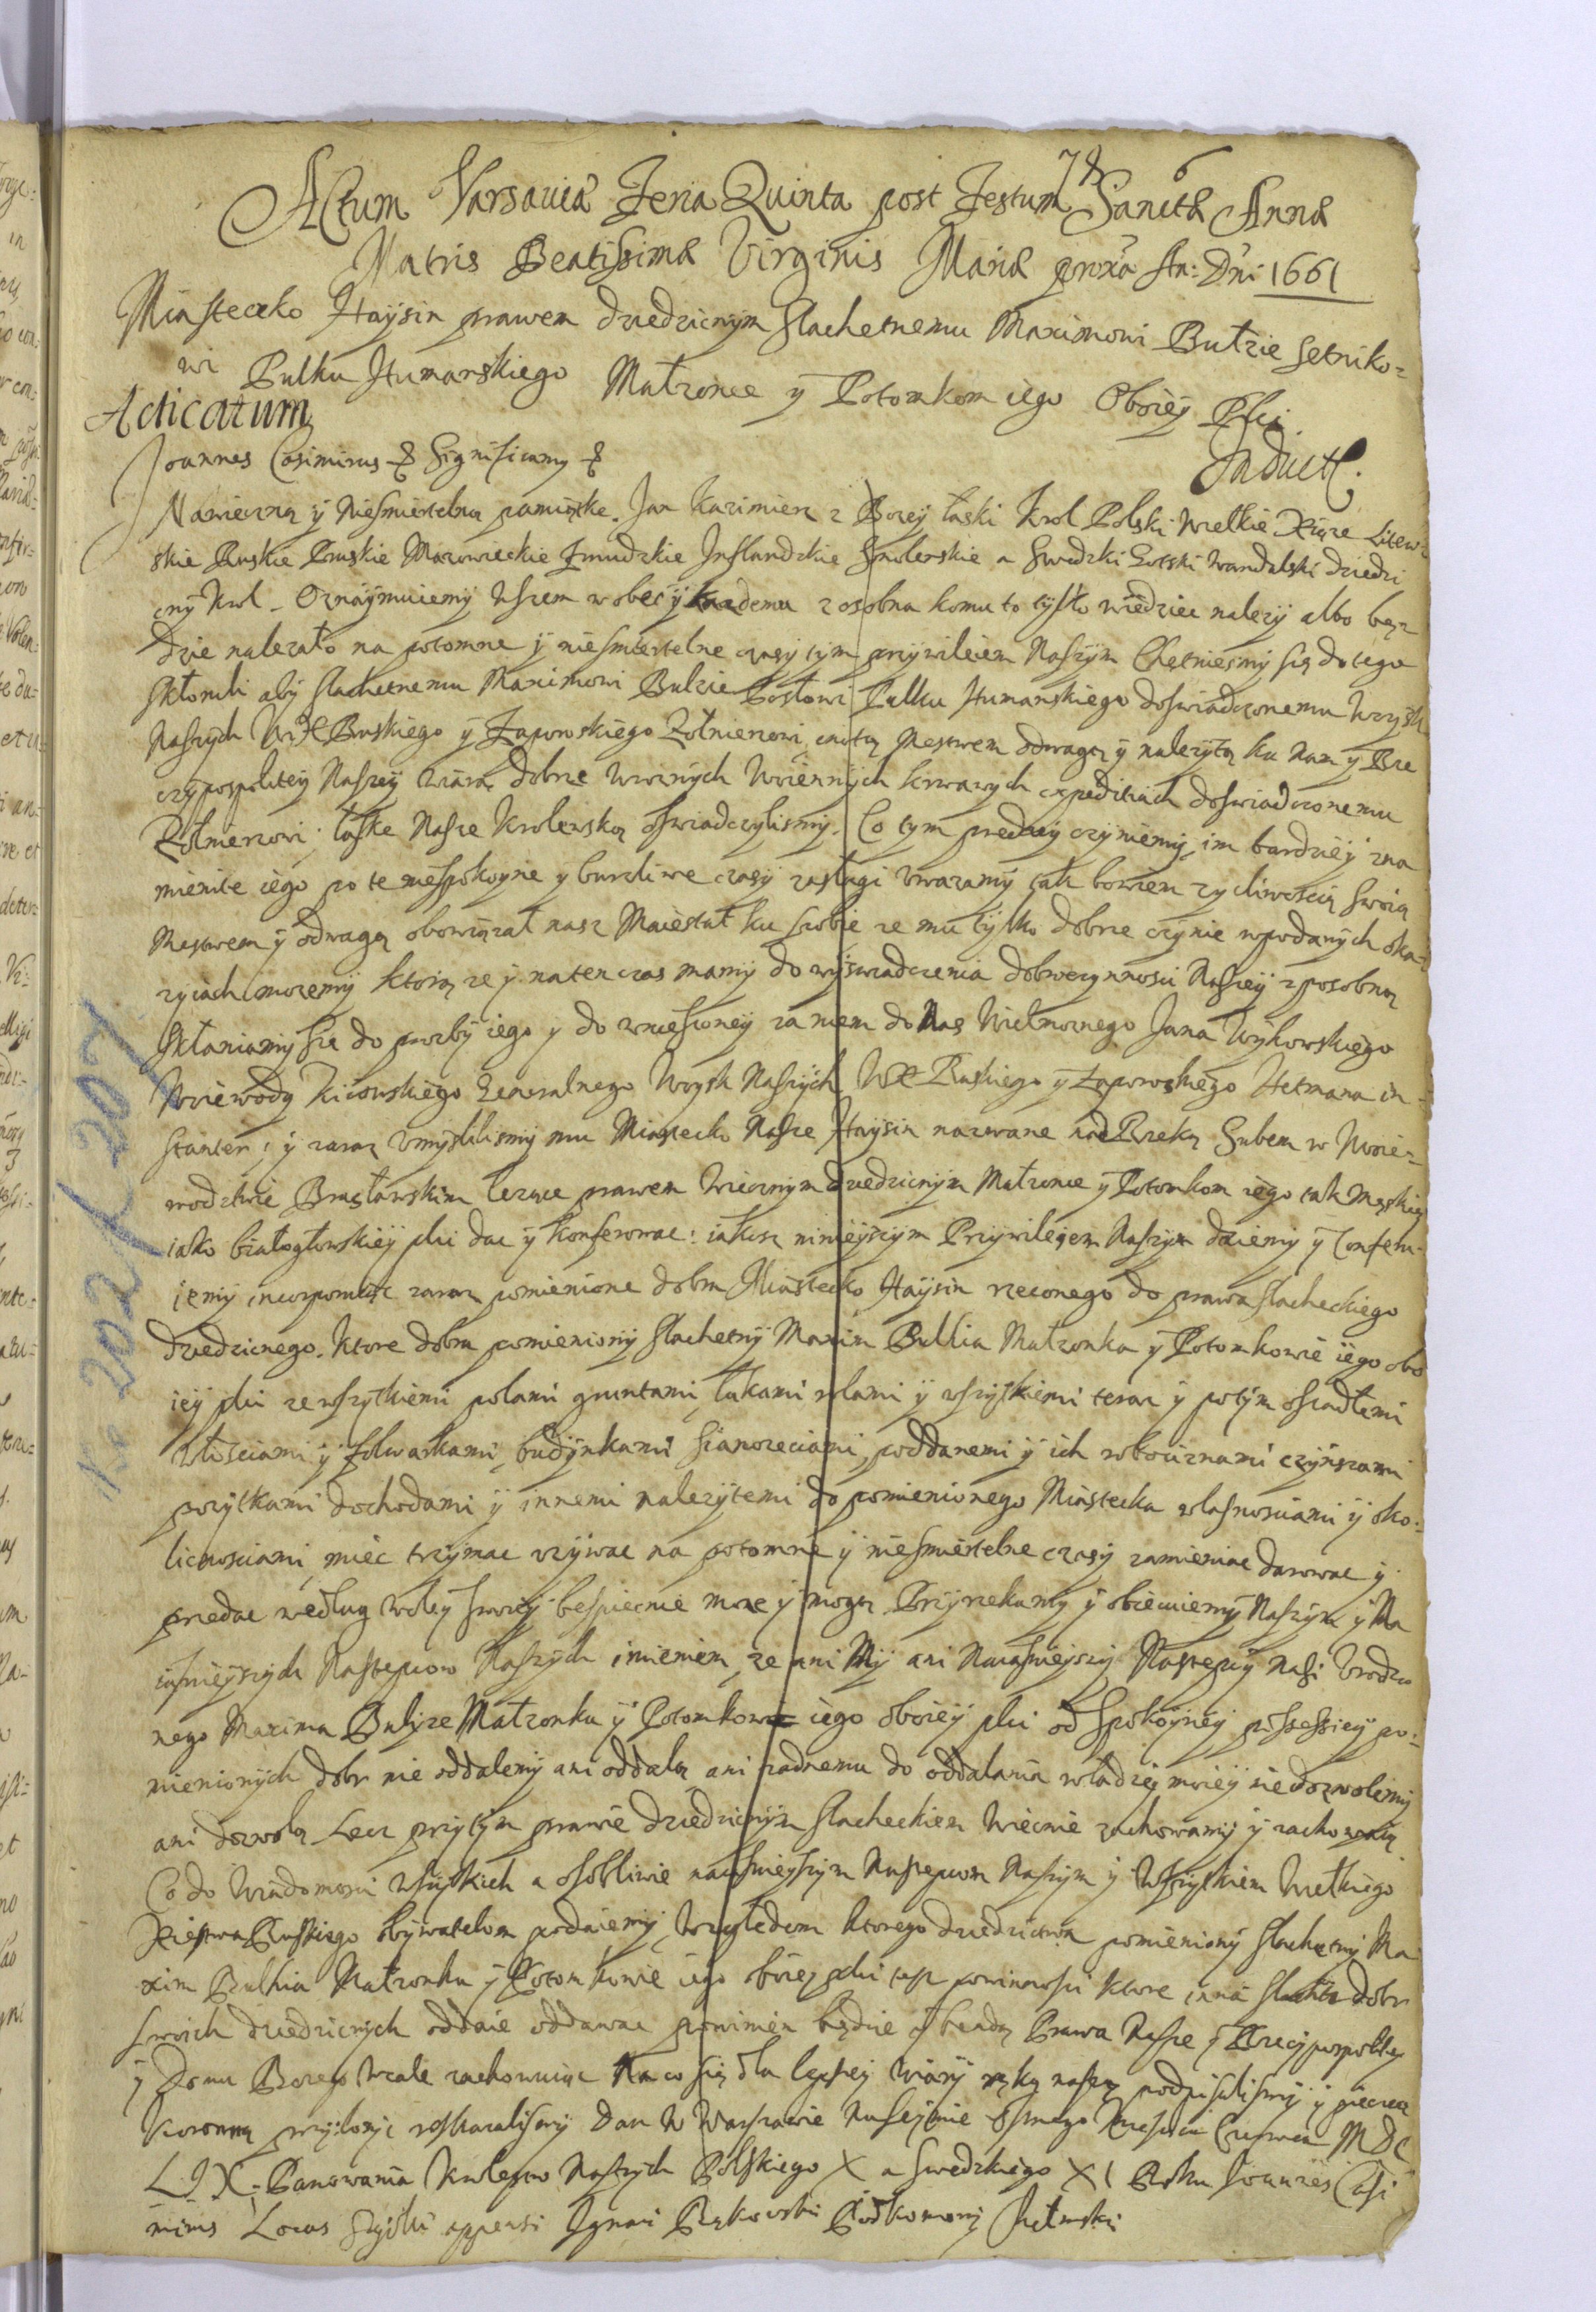 76
Actum Varsaviæ Feria Quinta post Festum Sanctæ Annæ
Matris Beatissimæ Virginis Mariæ proxa An: Dni 1661
Miasteczko Haysin prawem dziedzicznym slachetnemu Maximowi Bułzie setniko=
wi Pulku Humanskiego Małzonce y Potomkom iego Oboiey Plci
Acticatum
Inductę.
Joannes Casimirus & Significamus &
Nawieczną y Niesmiertelną pamiątke. Jan Kazimierz z Bozey łaski Krol Polski Wielkie Xiąze Litew=
skie Ruskie Pruskie Mazowieckie Zmudzkie Inflandzkie Smolenskie a Swedzki Gotski Wandalski dziedzi
czny Krol. Oznaymuiemy wszem wobec y kazdemu zosobna komu to tylko wiedziec nalezy albo będ
dzie nalezało na potomne y niesmiertelne czasy tym przywileiem Naszym Chętniesmy się do tego
skłonili aby slachetnemu Maximowi Bulzie Posłowi Pulku Humanskiego doswiadczonemu Woysk
Naszych WX Ruskiego y Zaporoskiego Zołnierzowi cnotą Męstwem odwagą y nalezytą ku Nam y Rze
czypospolitey Naszey wiarą dobrze wroznych Woiennych krwawych expeditiach doswiadczonemu
Zołnierzowi łaske Nasze Krolewską oswiadczylismy. Co tym prędzey czyniemy im bardziey zna
mienite iego po te niespokoyne y burzliwe czasy zasługi uwazamy tak bowiem zycliwoscią swoią
Męstwem y odwagą obowiązał nasz Maiestat ku sobie ze mu tylko dobrze czynic wpodanych oka=
zyiach mozemy ktorą ze y natenczas mamy do wyswiadczenia dobroczynnosci Naszey zposobną
Skłaniamy się do prozby iego y do wniesioney za niem do Nas Wielmoznego Jana Wyhowskiego
Woiewody Kiiowskiego Generalnego Woysk Naszych WX Ruskiego y Zaporoskiego Hetmana in=
stanten; y zaraz umyslilismy mu Miastecko Nasze Haysin nazwane nad Rzeką Subem w Woie=
wodztwie Bracławskim lezące prawem Wiecznym dziedzicznym Małzonce y Potomkom iego tak Męskiey
iako białogłowskiey plci dac y Konferowac: iakosz ninieyszym Przywileiem Naszym daiemy y Conferu=
iemy incorporuiąc zaraz pomienione dobra Miastecko Haysin rzeconego do prawa slacheckiego
dziedzicznego. Ktore dobra pomieniony slachetny Maxim Bulhia Małzonka y Potomkowie iego obo
iey plci ze wszytkiemi polami gruntami łąkami rolami y wszytkiemi teraz y potym osiadłemi
włosciami y folwarkami, budynkami sianozęciami, poddanemi y ich robociznami czynszami
pozytkami dochodami y innemi nalezytemi do pomienionego Miastecka własnosciami y oko=
licznosciami miec trzymac uzywac na potomne y niesmiertelne czasy zamieniac darowac y
przedac według woley swoiey bespiecznie moze y mogą Przyrzekamy y obiecuiemy Naszym y Na
iasnieyszych Nastepcow Naszych imieniem, ze ani My ani Naiasnieyszy Nastepcy Nasi Urodzo
nego Maxima Bulyze Małzonku y Potomkowie iego oboiey plci od Spokoyney possessiey po=
mienionych dobr nie oddalemy ani oddalą ani zadnemu do oddalania władzey moiey niedozwolemy
ani dozwolą Lecz przytym prawie dziedzicznym slacheckiem Wiecznie zachowamy y zachowaią
Co do Wiadomosci wszytkich a osobliwie naiasnieyszym Nastepcom Naszym y Wszytkiem Wielkiego
Xięstwa Ruskiego obywatelom podaiemy, Względem ktorego dziedzictwa pomieniony slachetny Ma
xim Bulhia Małzonka y Potomkowie iego oboiey plci tesz powinnosci ktore inna slachta dobr
swoich dziedzicznych oddaie oddawac powinien będzie y będą Prawa Nasze y Rzeczypospolitey
y Domu Bozego Wcale zachowuiąc Na co się dla lepszey wiary ręką naszą podpisalismy y pieczęc
Koronną przylozyc roskazalismy Dan W Warszawie Naseymie osmego Miesiąca Czerwca MDC
LIX. Panowania Krolestw Naszych Polskiego X a Swedzkiego XI Roku Joannes Casi
mirus Locus Sigilli appensi Ignaci Bąkowski Podkomorzy Chełmski
No 202 k 207